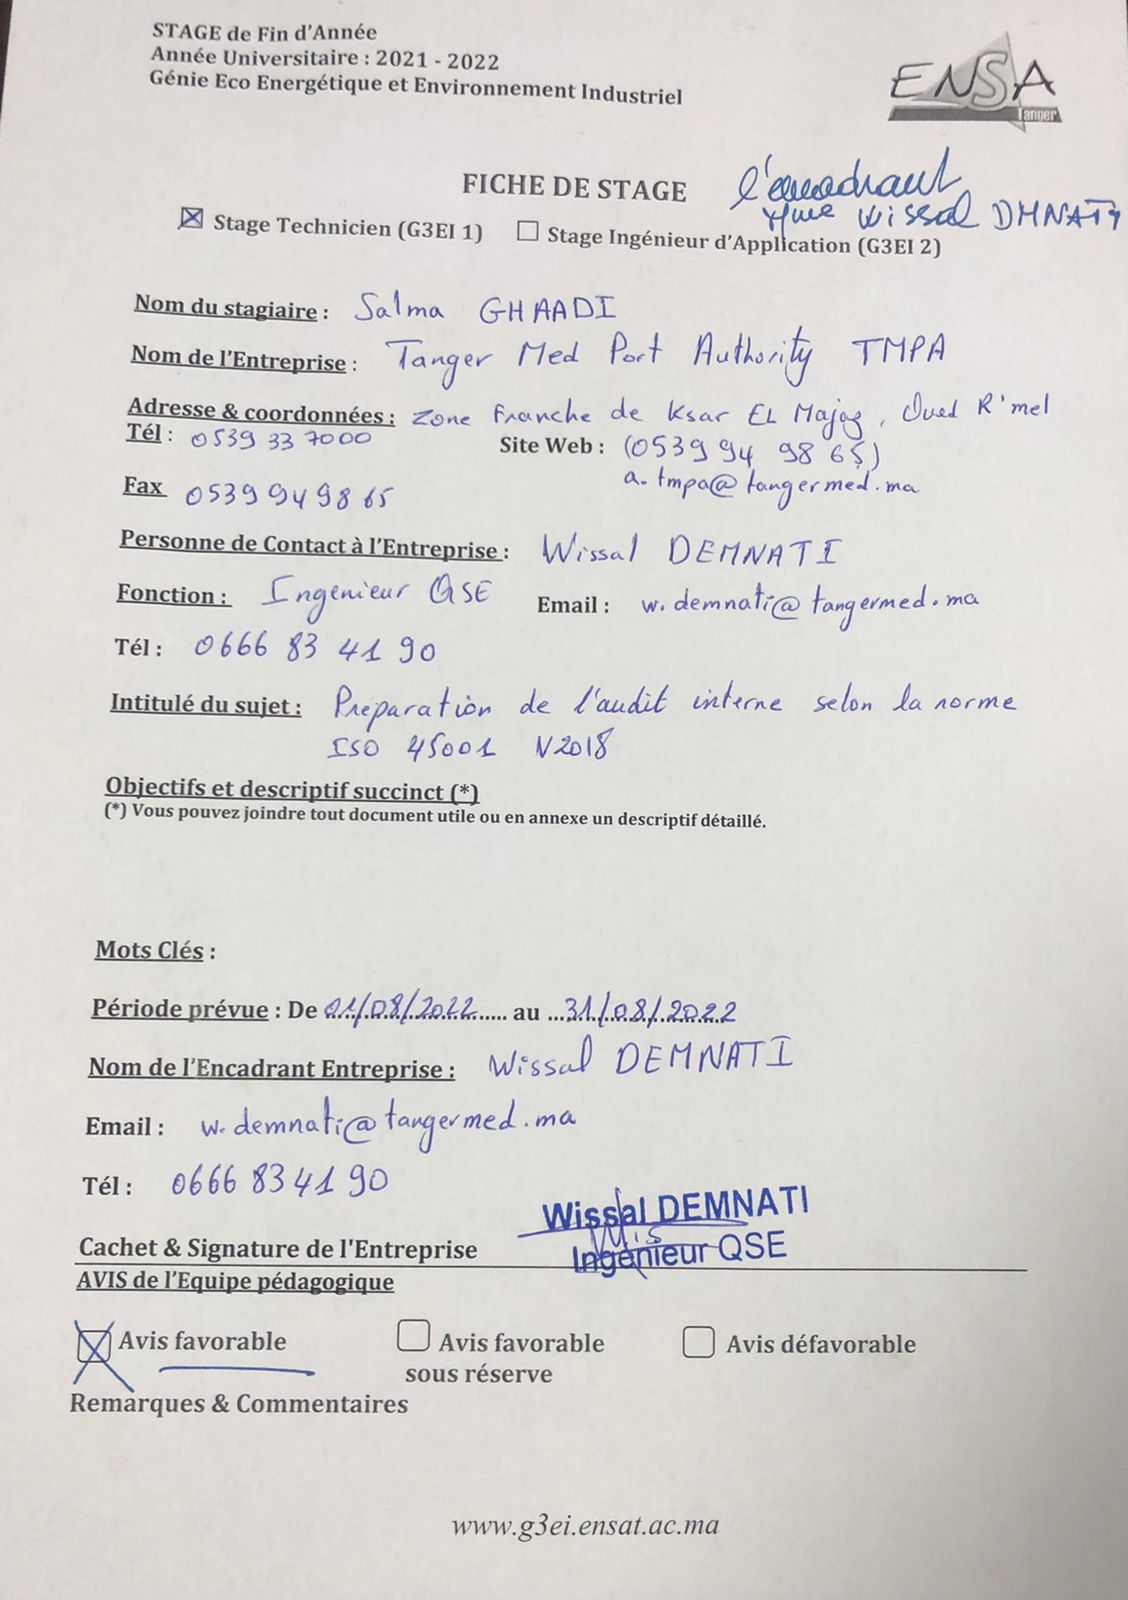 STAGE de Fin d'Année
Année Universitaire : 2021 - 2022
Génie Eco Energétique et Environnement Industriel
ENSA
Tanger
FICHE DE STAGE
l'encadrant
Mme Wissal DMNATI
☒ Stage Technicien (G3EI 1) ☐ Stage Ingénieur d'Application (G3EI 2)
Nom du stagiaire : Salma GHAADI
Nom de l'Entreprise : Tanger Med Port Authority TMPA
Adresse & coordonnées : Zone Franche de Ksar EL Majaz, Oued R'mel
Tél : 0539 33 7000 Site Web : (0539 94 98 65)
a.tmpa@tangermed.ma
Fax 0539 94 98 65
Personne de Contact à l'Entreprise : Wissal DEMNATI
Fonction : Ingénieur QSE Email : w.demnati@tangermed.ma
Tél : 0666 83 41 90
Intitulé du sujet : Préparation de l'audit interne selon la norme
ISO 45001 V2018
Objectifs et descriptif succinct (*)
(*) Vous pouvez joindre tout document utile ou en annexe un descriptif détaillé.
Mots Clés :
Période prévue : De 01/08/2022 ..... au ...31/08/2022
Nom de l'Encadrant Entreprise : Wissal DEMNATI
Email : w.demnati@tangermed.ma
Tél : 0666 83 41 90
Wissal DEMNATI
Ingénieur QSE
Cachet & Signature de l'Entreprise
AVIS de l'Equipe pédagogique
☒ Avis favorable ☐ Avis favorable ☐ Avis défavorable
sous réserve
Remarques & Commentaires
www.g3ei.ensat.ac.ma